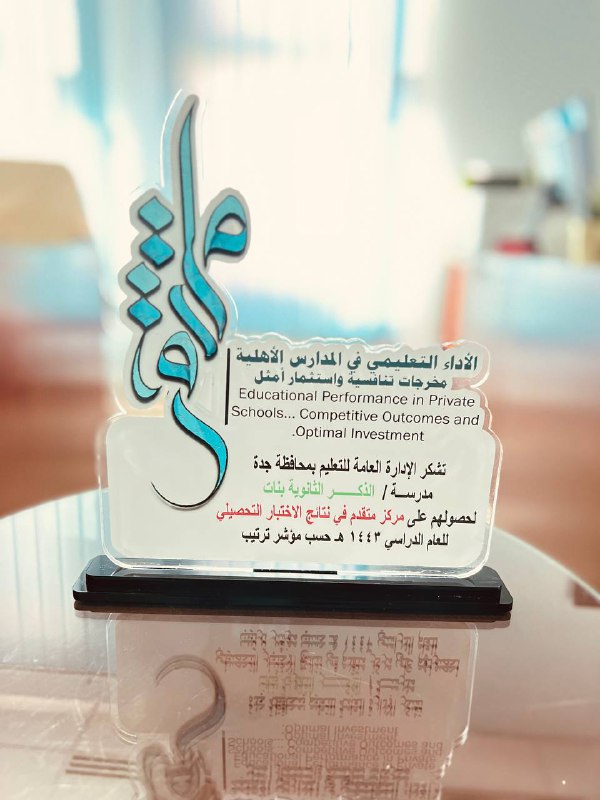 ملتقى
الأداء التعليمي في المدارس الأهلية
مخرجات تنافسية واستثمار أمثل
Educational Performance in Private
Schools... Competitive Outcomes and
.Optimal Investment
تشكر الإدارة العامة للتعليم بمحافظة جدة
مدرســة / الذكــــر الثانوية بنات
لحصولهم على مركز متقدم في نتائج الاختبار التحصيلي
للعام الدراسي ١٤٤٣ هـ حسب مؤشر ترتيب